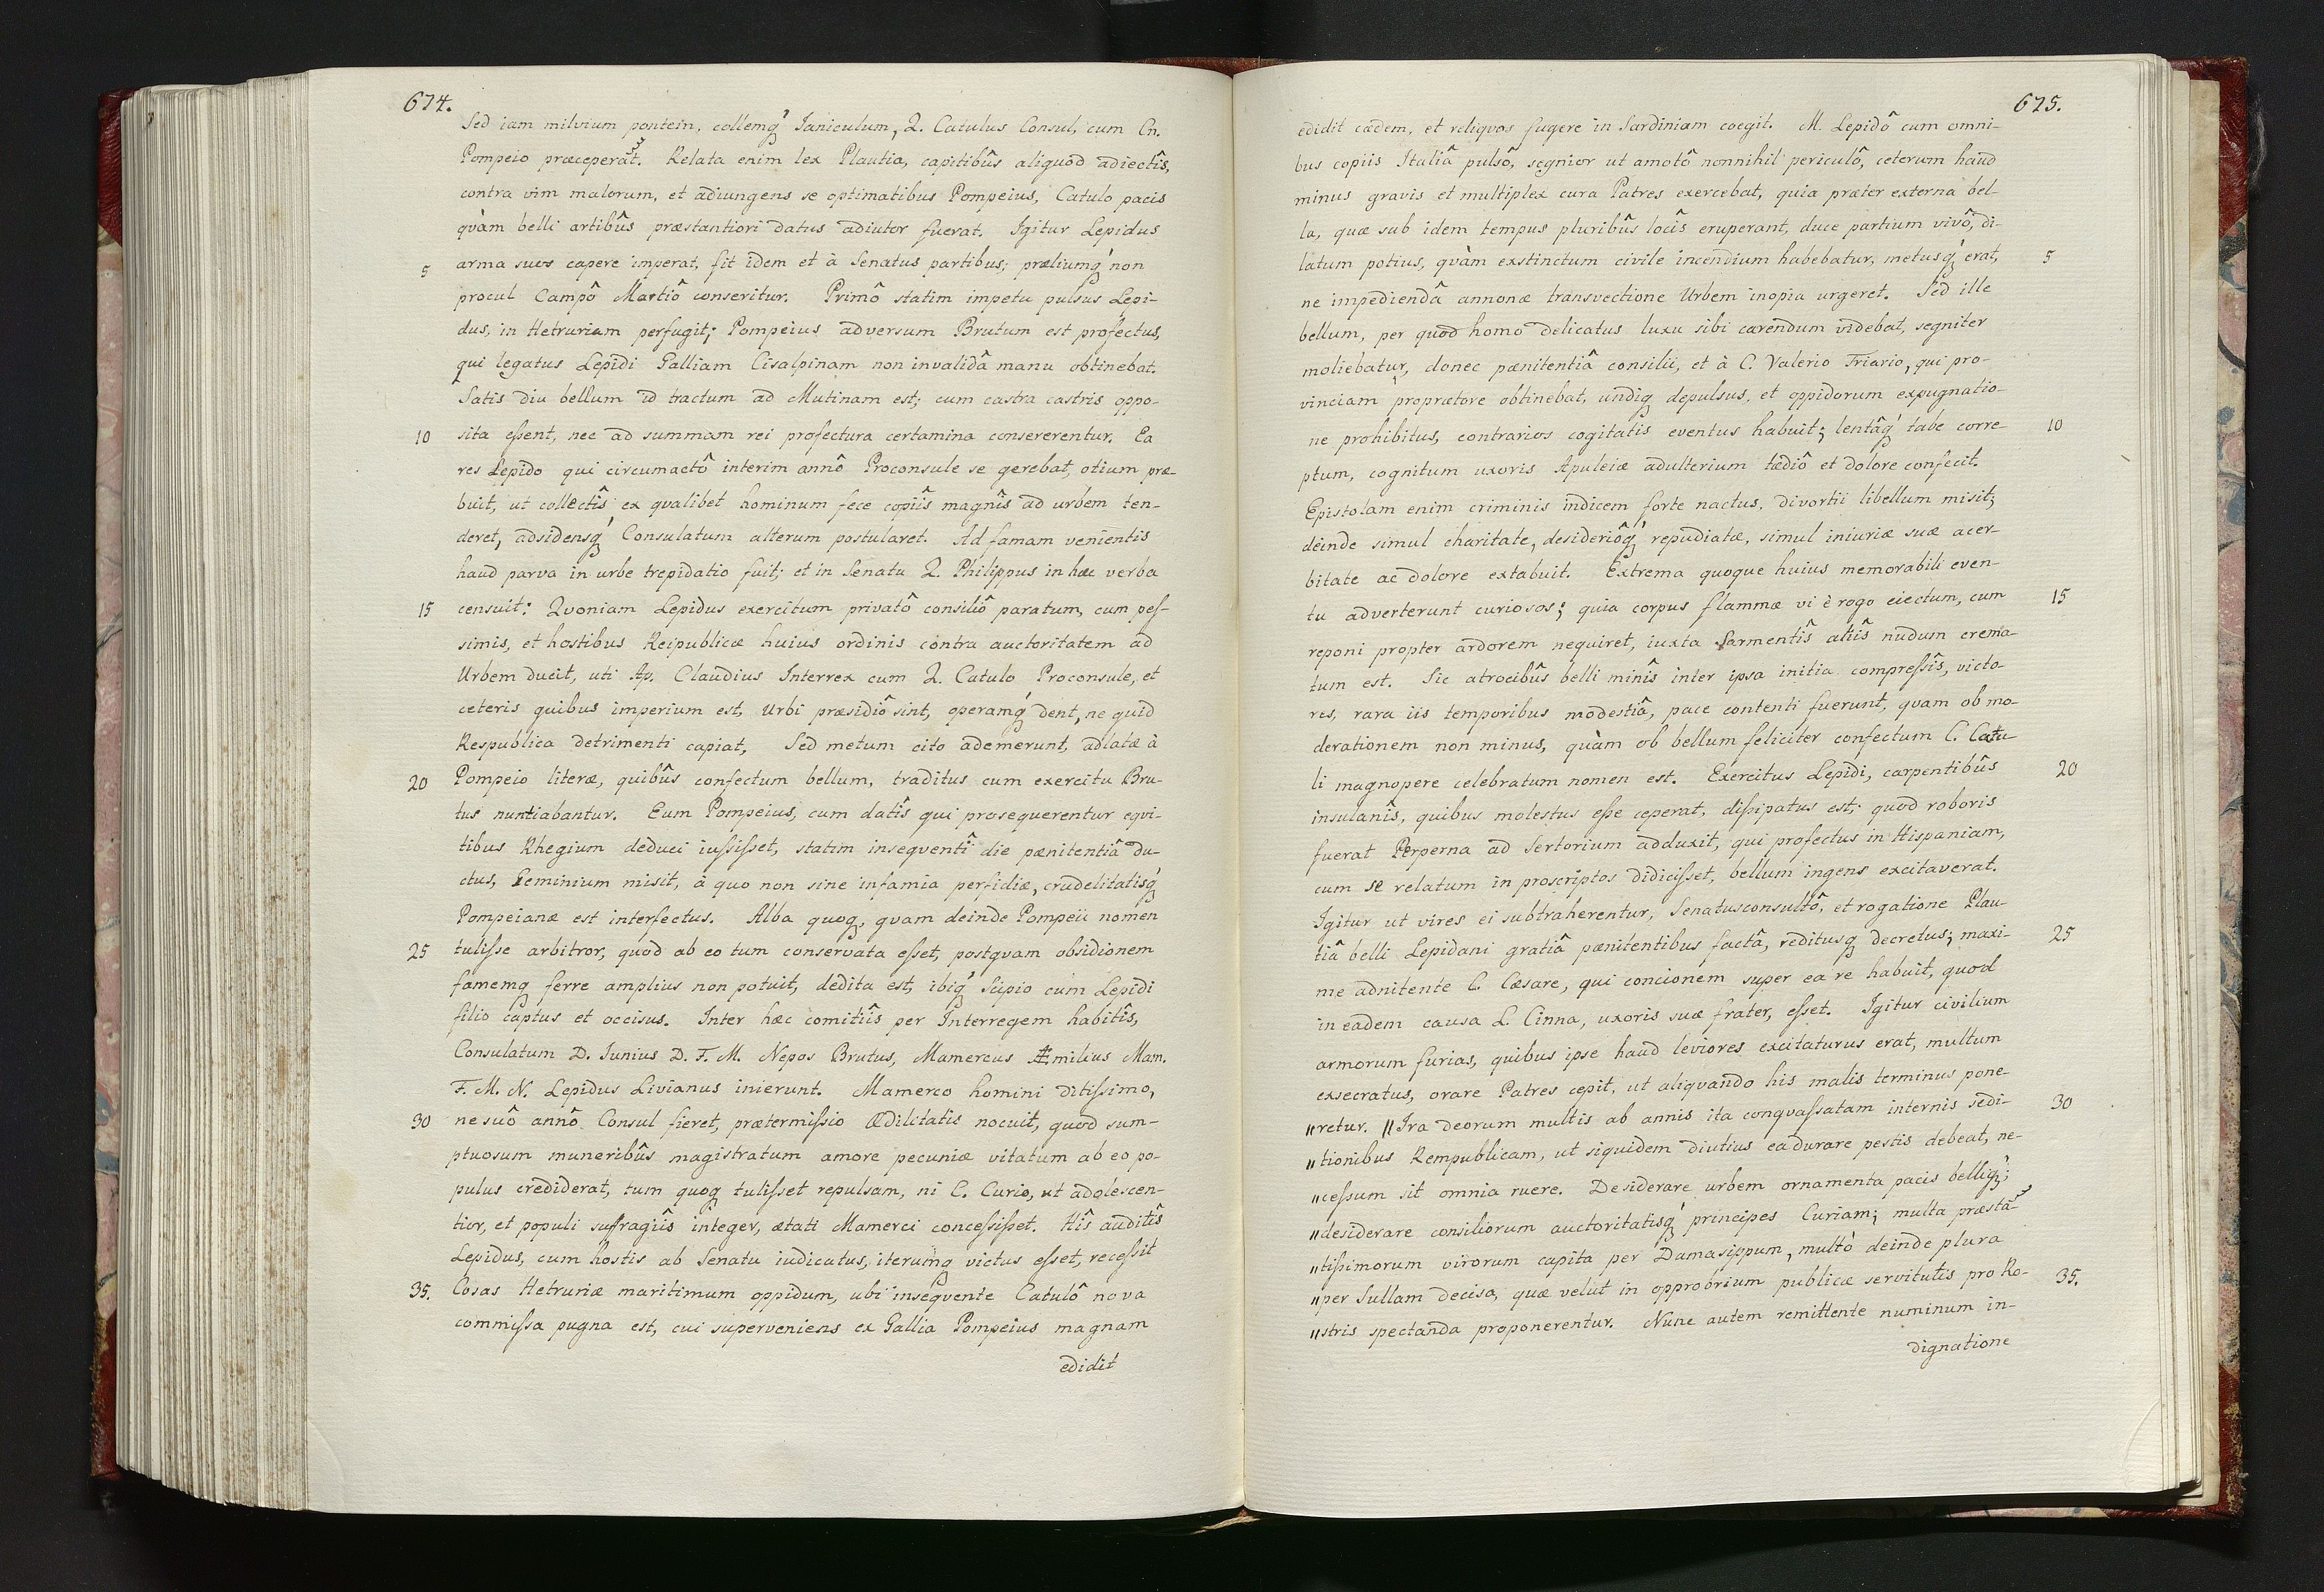 674.
Sed iam milvium pontem, collemq́ Ianiculum, Q. Catulus Consul, cum Cn.
Pompeio præceperat. Relata enim lex Plautia, capitibûs aliquod adiectîs,
contra vim malorum, et adiungens se optimatibus Pompeius, Catulo pacis
qvàm belli artibûs præstantiori datus adiutor fuerat. Igitur Lepidus
5 arma suos capere imperat, fit idem et à Senatus partibus; præliumq́ non
procul Campô Martiô conseritur. Primô statim impetu pulsus Lepi-
dus, in Hetruriam perfugit; Pompeius adversum Brutum est profectus,
qui legatus Lepidi Galliam Cisalpinam non invalidâ manu obtinebat.
Satis diu bellum id tractum ad Mutinam est; cum castra castris oppo-
10 sita eſsent, nec ad summam rei profectura certamina consererentur. Ea
res Lepido qui circumactô interim annô Proconsule se gerebat, otium præ-
buit, ut collectîs ex qvalibet hominum fece copiîs magnîs ad urbem ten-
deret, adsidensq́ Consulatum alterum postularet. Ad famam venientis
haud parva in urbe trepidatio fuit; et in Senatu Q. Philippus in hæc verba
15 censuit: Qvoniam Lepidus exercitum privatô consiliô paratum, cum peſ-
simis, et hostibus Reipublicæ huius ordinis contra auctoritatem ad
Urbem ducit, uti Ap. Claudius Interrex cum Q. Catulo Proconsule, et
ceteris quibus imperium est, Urbi præsidiô sint, operamq́ dent, ne quid
Respublica detrimenti capiat, Sed metum cito ademerunt, adlatæ à
20 Pompeio literæ, quibûs confectum bellum, traditus cum exercitu Bru-
tus nuntiabantur. Eum Pompeius, cum datîs qui prosequerentur eqvi-
tibus Rhegium deduci iuſsiſset, statim inseqventî die pænitentiâ du-
ctus, Geminium misit, à quo non sine infamia perfidiæ, crudelitatisq́
Pompeianæ est interfectus. Alba quoq, qvam deinde Pompeii nomen
25 tuliſse arbitror, quod ab eo tum conservata eſset, postqvam obsidionem
famemq ferre amplius non potuit, dedita est, ibiq́ Scipio cum Lepidi
filio captus et occisus. Inter hæc comitiîs per Interregem habitîs,
Consulatum D. Iunius D. F. M. Nepos Brutus, Mamercus Æmilius Mam.
F. M. N. Lepidus Livianus inierunt. Mamerco homini ditiſsimo,
30 ne suô annô Consul fieret, prætermiſsio Ædilitatis nocuit, quod sum-
ptuosum muneribûs magistratum amore pecuniæ vitatum ab eo po-
pulus crediderat, tum quoq tuliſset repulsam, ni C. Curio, ut adolescen-
tior, et populi suffragiîs integer, ætati Mamerci conceſsiſset. Hîs auditîs
Lepidus, cum hostis ab Senatu iudicatus, iterumq victus eſset, receſsit
35. Cosas Hetruriæ maritimum oppidum, ubi inseqvente Catulô nova
commiſsa pugna est, cui superveniens ex Gallia Pompeius magnam
edidit
675.
edidit cædem, et reliqvos fugere in Sardiniam coegit. M. Lepidô cum omni-
bus copiis Italiâ pulsô, segnior ut amotô nonnihil periculô, ceterum haud
minus gravis et multiplex cura Patres exercebat, quia præter externa bel-
la, quæ sub idem tempus pluribûs locîs eruperant, duce partium vivô, di-
latum potius, qvàm exstinctum civile incendium habebatur, metusq́ erat, 5
ne impediendâ annonæ transvectione Urbem inopia urgeret. Sed ille
bellum, per quod homo delicatus luxu sibi carendum videbat, segniter
moliebatur, donec pænitentiâ consilii, et à C. Valerio Triario, qui pro-
vinciam proprætore obtinebat, undiq depulsus, et oppidorum expugnatio-
ne prohibitus, contrarios cogitatis eventus habuit; lentâq́ tabe corre- 10
ptum, cognitum uxoris Apuleiæ adulterium tædiô et dolore confecit.
Epistolam enim criminis indicem forte nactus, divortii libellum misit;
deinde simul charitate, desideriôq́ repudiatæ, simul iniuriæ suæ acer-
bitate ac dolore extabuit. Extrema quoque huius memorabili even-
tu adverterunt curiosos; quia corpus flammæ vi è rogo eiectum, cum 15
reponi propter ardorem nequiret, iuxta sarmentîs aliîs nudum crema-
tum est. Sic atrocibûs belli minîs inter ipsa initia compreſsîs, victo-
res, rara iis temporibus modestiâ, pace contenti fuerunt, qvam ob mo-
derationem non minus, qvàm ob bellum feliciter confectum C. Catu-
li magnopere celebratum nomen est. Exercitus Lepidi, carpentibûs 20
insulanîs, quibus molestus eſse ceperat, diſsipatus est; quod roboris
fuerat Perperna ad Sertorium adduxit, qui profectus in Hispaniam,
cum se relatum in proscriptos didiciſset, bellum ingens excitaverat.
Igitur ut vires ei subtraherentur, Senatusconsultô, et rogatione Plau-
tiâ belli Lepidani gratiâ pænitentibus factâ, reditusq decretus; maxi- 25
me adnitente C. Cæsare, qui concionem super ea re habuit, quod
in eadem causa L. Cinna, uxoris suæ frater, eſset. Igitur civilium
armorum furias, quibus ipse haud leviores excitaturus erat, multum
exsecratus, orare Patres cepit, ut aliqvando his malis terminus pone-
"retur. "Ira deorum multis ab annis ita conqvaſsatam internis sedi- 30
"tionibus Rempublicam, ut siquidem diutius ea durare pestis debeat, ne-
"ceſsum sit omnia ruere. Desiderare urbem ornamenta pacis belliq́;
"desiderare consiliorum auctoritatisq́ principes Curiam; multa præstâ-
"tiſsimorum virorum capita per Damasippum, multò deinde plura
"per Sullam decisa, quæ velut in opprobrium publicæ servitutis pro Ro- 35.
"stris spectanda proponerentur. Nunc autem remittente numinum in-
dignatione